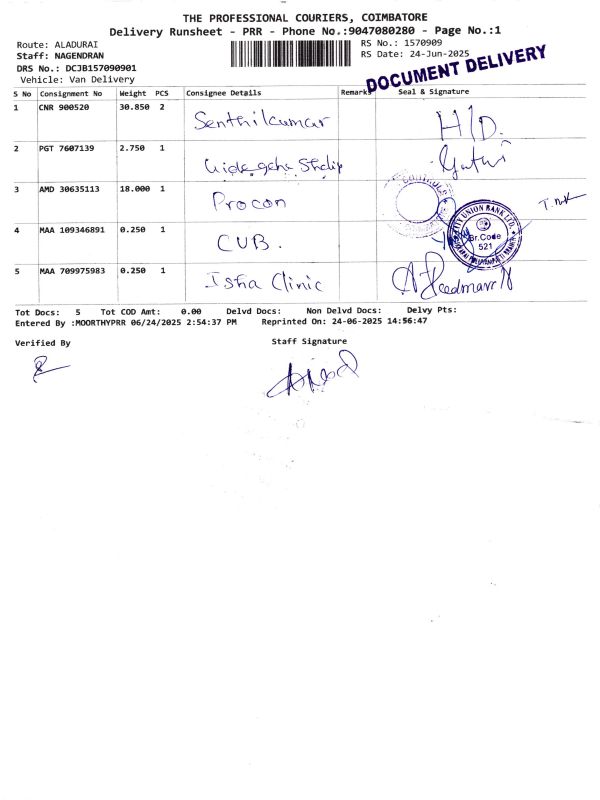 THE PROFESSIONAL COURIERS, COIMBATORE
Delivery Runsheet - PRR - Phone No.:9047080280 - Page No.:1
Route: ALADURAI
RS No.: 1570909
Staff: NAGENDRAN
RS Date: 24-Jun-2025
DRS No.: DCJB157090901
Vehicle: Van Delivery
DOCUMENT DELIVERY
S No Consignment No Weight PCS Consignee Details Remarks Seal & Signature
1 CNR 900520 30.850 2 Senthilkumar H/D.
2 PGT 7607139 2.750 1
3 AMD 30635113 18.000 1 Procon
4 MAA 109346891 0.250 1 CUB.
CITY UNION BANK LTD.
Br.Code
521
5 MAA 709975983 0.250 1 Isha Clinic
Tot Docs: 5 Tot COD Amt: 0.00 Delvd Docs: Non Delvd Docs: Delvy Pts:
Entered By :MOORTHYPRR 06/24/2025 2:54:37 PM Reprinted On: 24-06-2025 14:56:47
Verified By Staff Signature